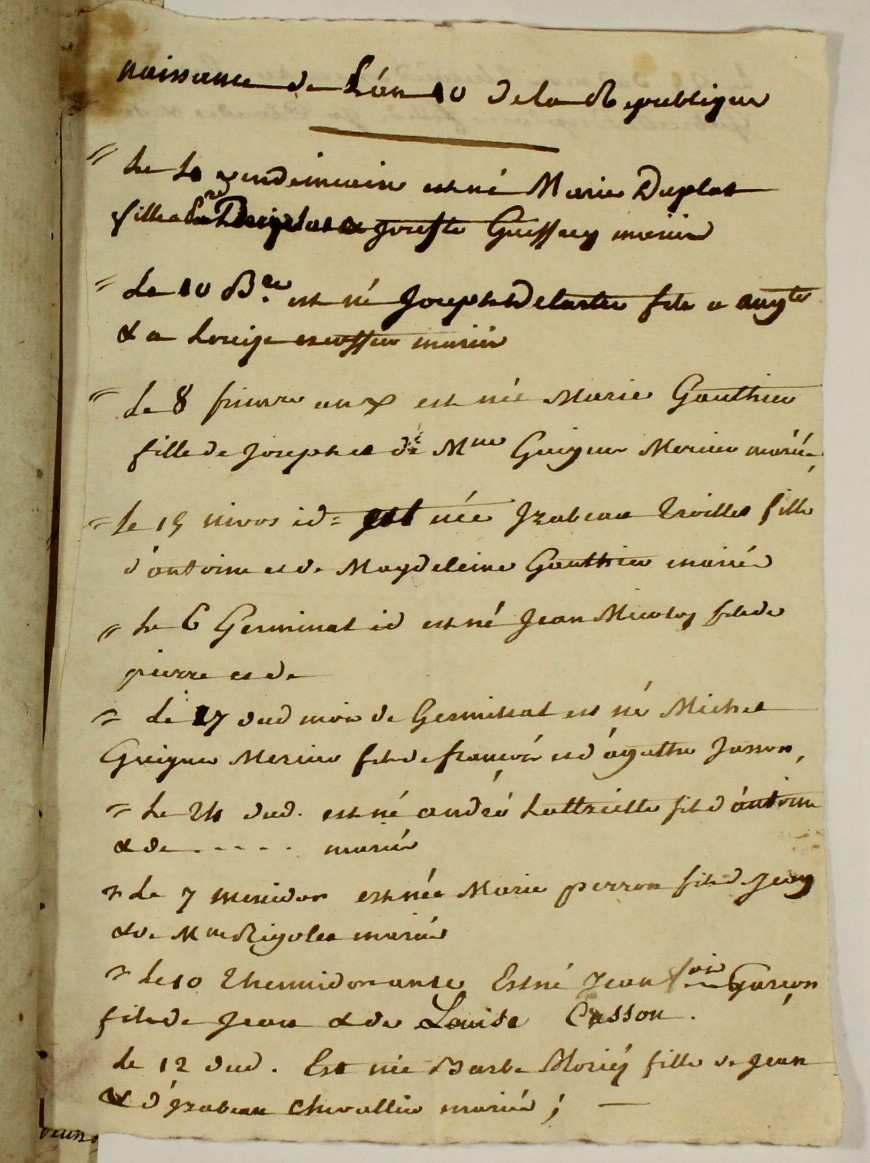 naissance de L'án 10 de la Republique
Le 4 vendemiaire est né Marie Duplat
fille a Duplat & Josefte mariés
Le 10 B.re est né Joseph fils a aug.te
& a Louise mariés
Le 8 frimre an X est née Marie Gauthier
fille de Joseph et de Mme Guigue Mercier mariés
Le 15 nivos id= est née Izabeau fille
d'antoine et de Magdeleine Gauthier mariés
Le 6 Germinal id est né Jean Nicolas fils de
pierre et de
Le 17 dud mois de Germinal est né Michel
Guigue Mercier fils de francois et d'agathe
Le 24 dud. est né andré fils d'antoine
& de - - - - mariés
Le 7 messidor est née Marie perron fils de Jean
& de Mme Rigolet mariés
Le 10 Thermidor Est né Jean fois Garçon
fils de Jean & de Louise Cusson.
Le 12 dud. Est née Barbe fille de Jean
& d'Izabeau Chevallier mariés ; —